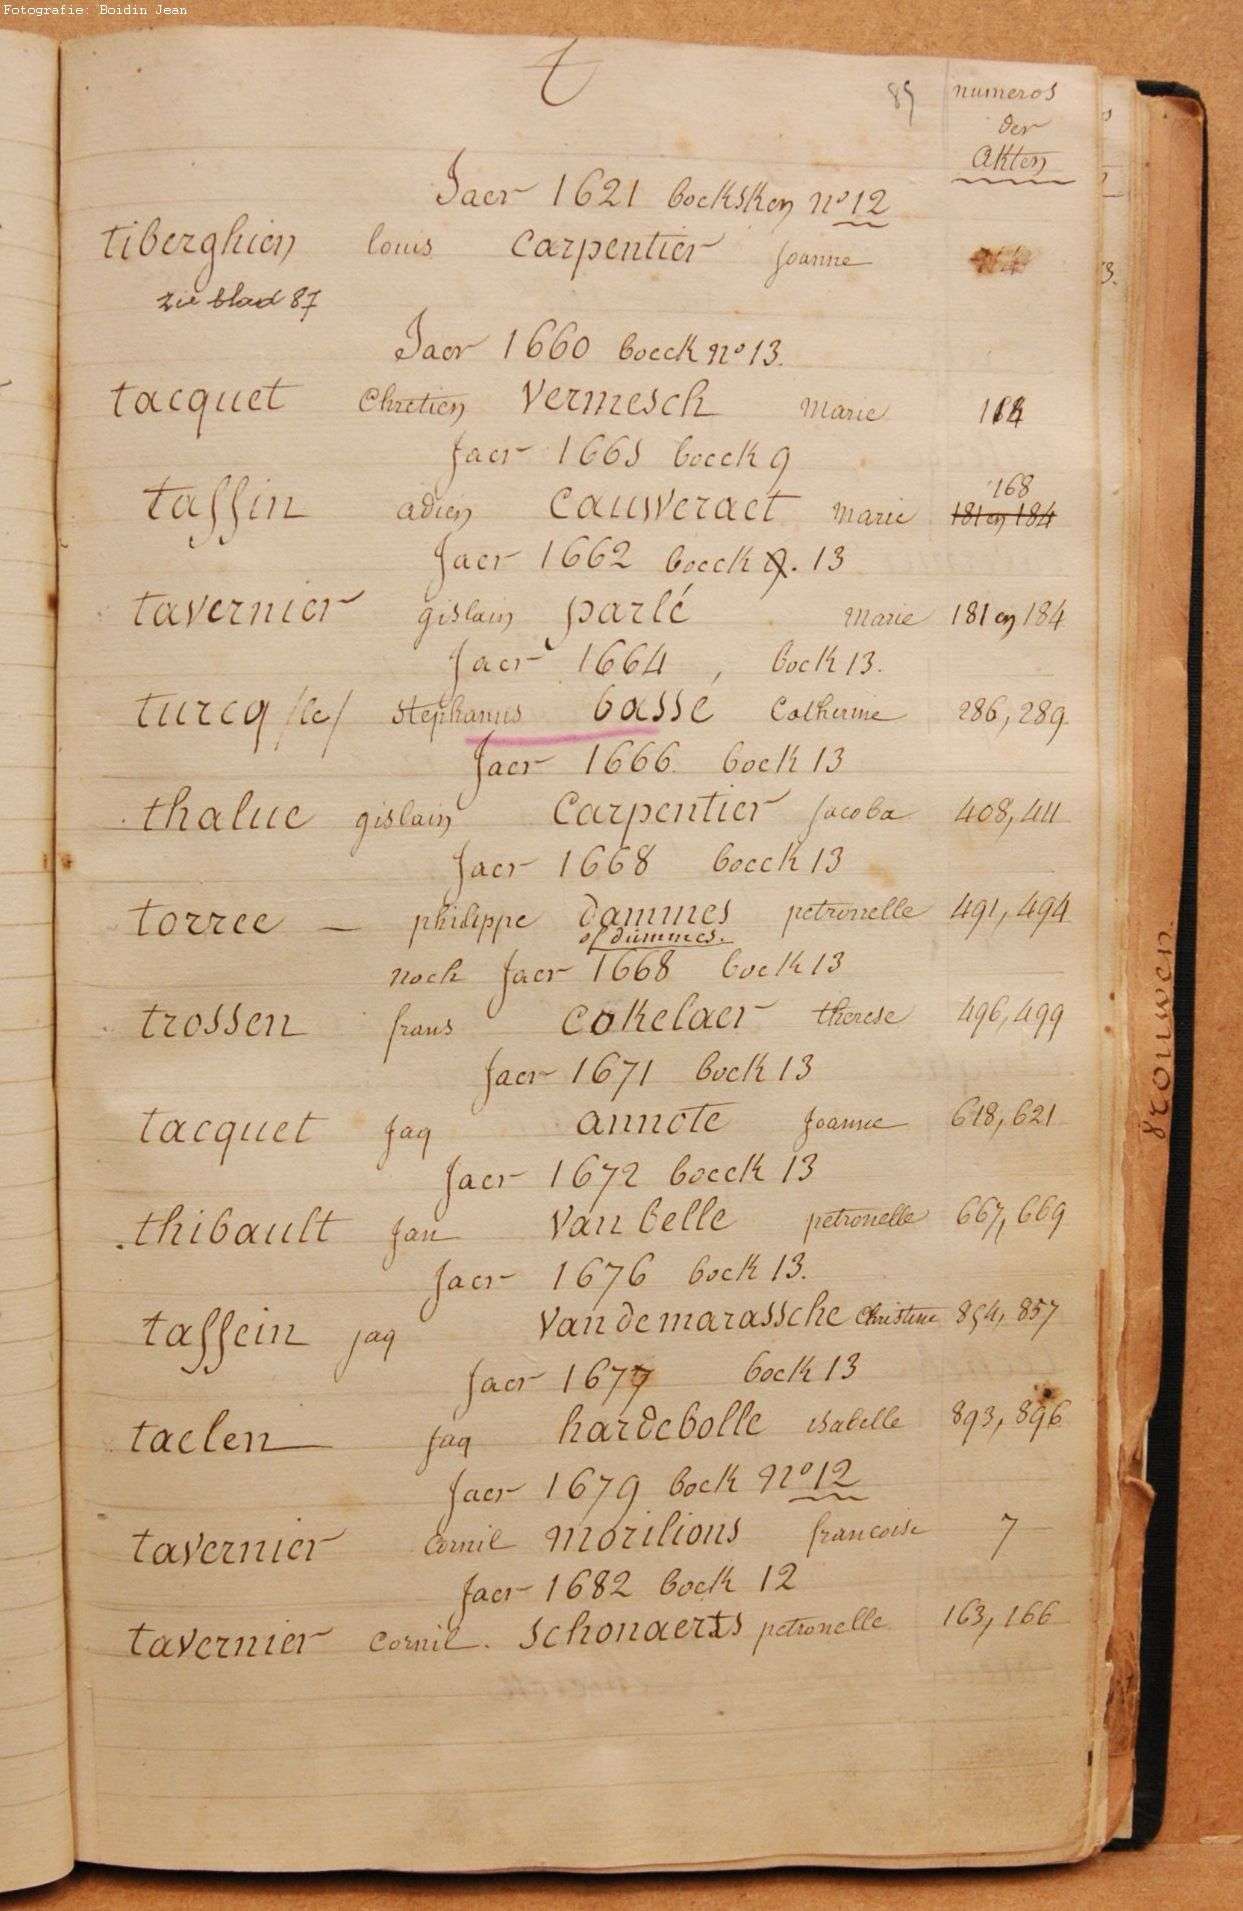 Fotografie: Boidin Jean
t
85 numeros
der
akten
Jaer 1621 boeksken no 12
tiberghien louis carpentier Joanne
zie blad 87
Jaer 1660 boeck no 13.
tacquet Chretien vermesch marie
Jaer 1665 boeck 9
168
taffin adien cauweraet marie 181 en 184
Jaer 1662 boeck 9. 13
tavernier gislain parlé marie 181 en 184
Jaer 1664, boek 13.
turcq /le/ stephanus bassé Catherine 286, 289
Jaer 1666 boek 13
thaluc gislain carpentier Jacoba 408, 411
Jaer 1668 boeck 13
torree philippe dammes petronelle 491, 494
of dummes.
noch Jaer 1668 boek 13
trossen frans cokelaer therese 496, 499
Jaer 1671 boek 13
tacquet Jaq annote Joanne 618, 621
Jaer 1672 boeck 13
thibault Jan van belle petronelle 667, 669
Jaer 1676 boek 13.
taffein jaq van de marassche Christine 854, 857
Jaer 1677 boek 13
taelen Jaq hardebolle isabelle 893, 896
Jaer 1679 boek No 12
tavernier Cornil morilions francoise 7
Jaer 1682 boek 12
tavernier cornil. schonaerts petronelle 163, 166
vrouwen